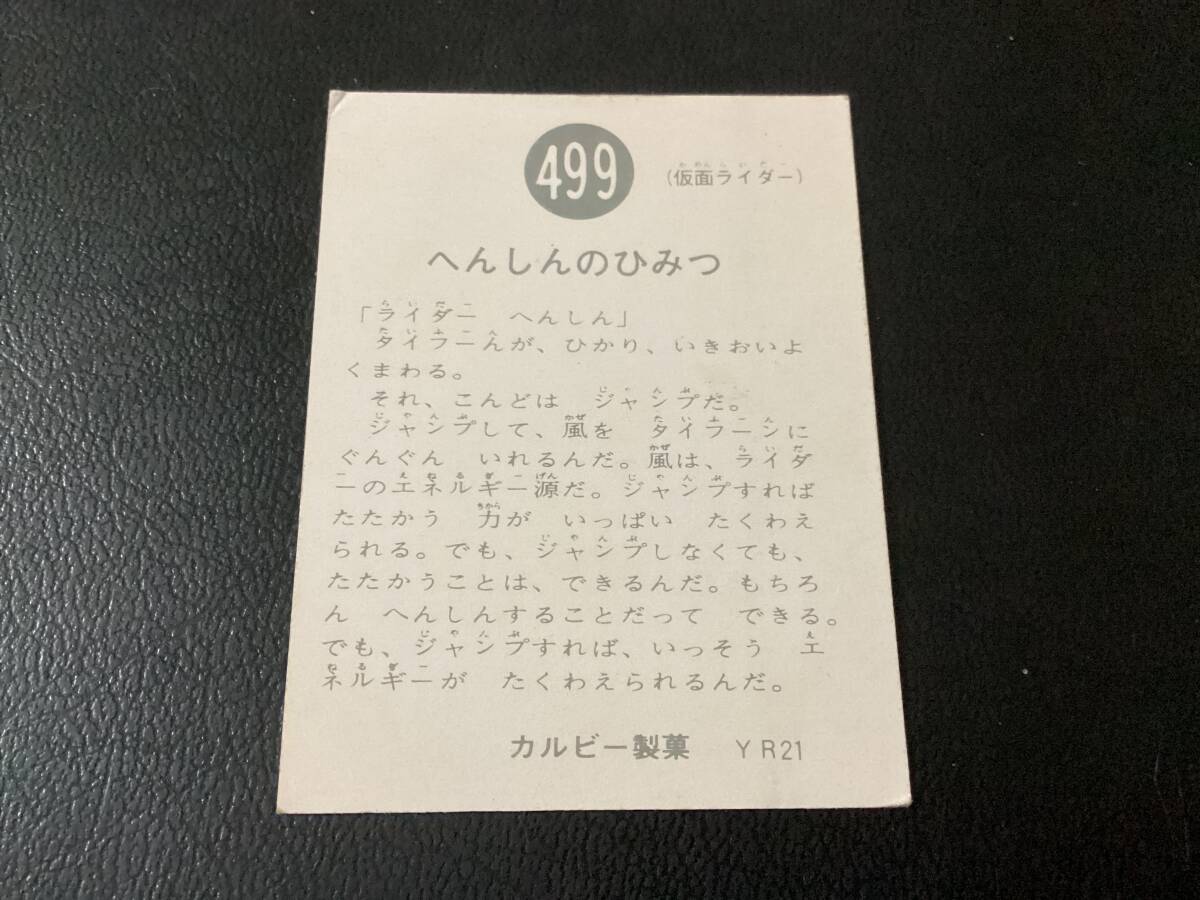 499
(仮面ライダー)
へんしんのひみつ
「ライダー へんしん」
タイフーんが、ひかり、いきおいよ
くまわる。
それ、こんどは ジャンプだ。
ジャンプして、風を タイフーンに
ぐんぐん いれるんだ。風は、ライダ
ーのエネルギー源だ。ジャンプすれば
たたかう 力が いっぱい たくわえ
られる。でも、ジャンプしなくても、
たたかうことは、できるんだ。もちろ
ん へんしんすることだって できる。
でも、ジャンプすれば、いっそう エ
ネルギーが たくわえられるんだ。
カルビー製菓 YR21